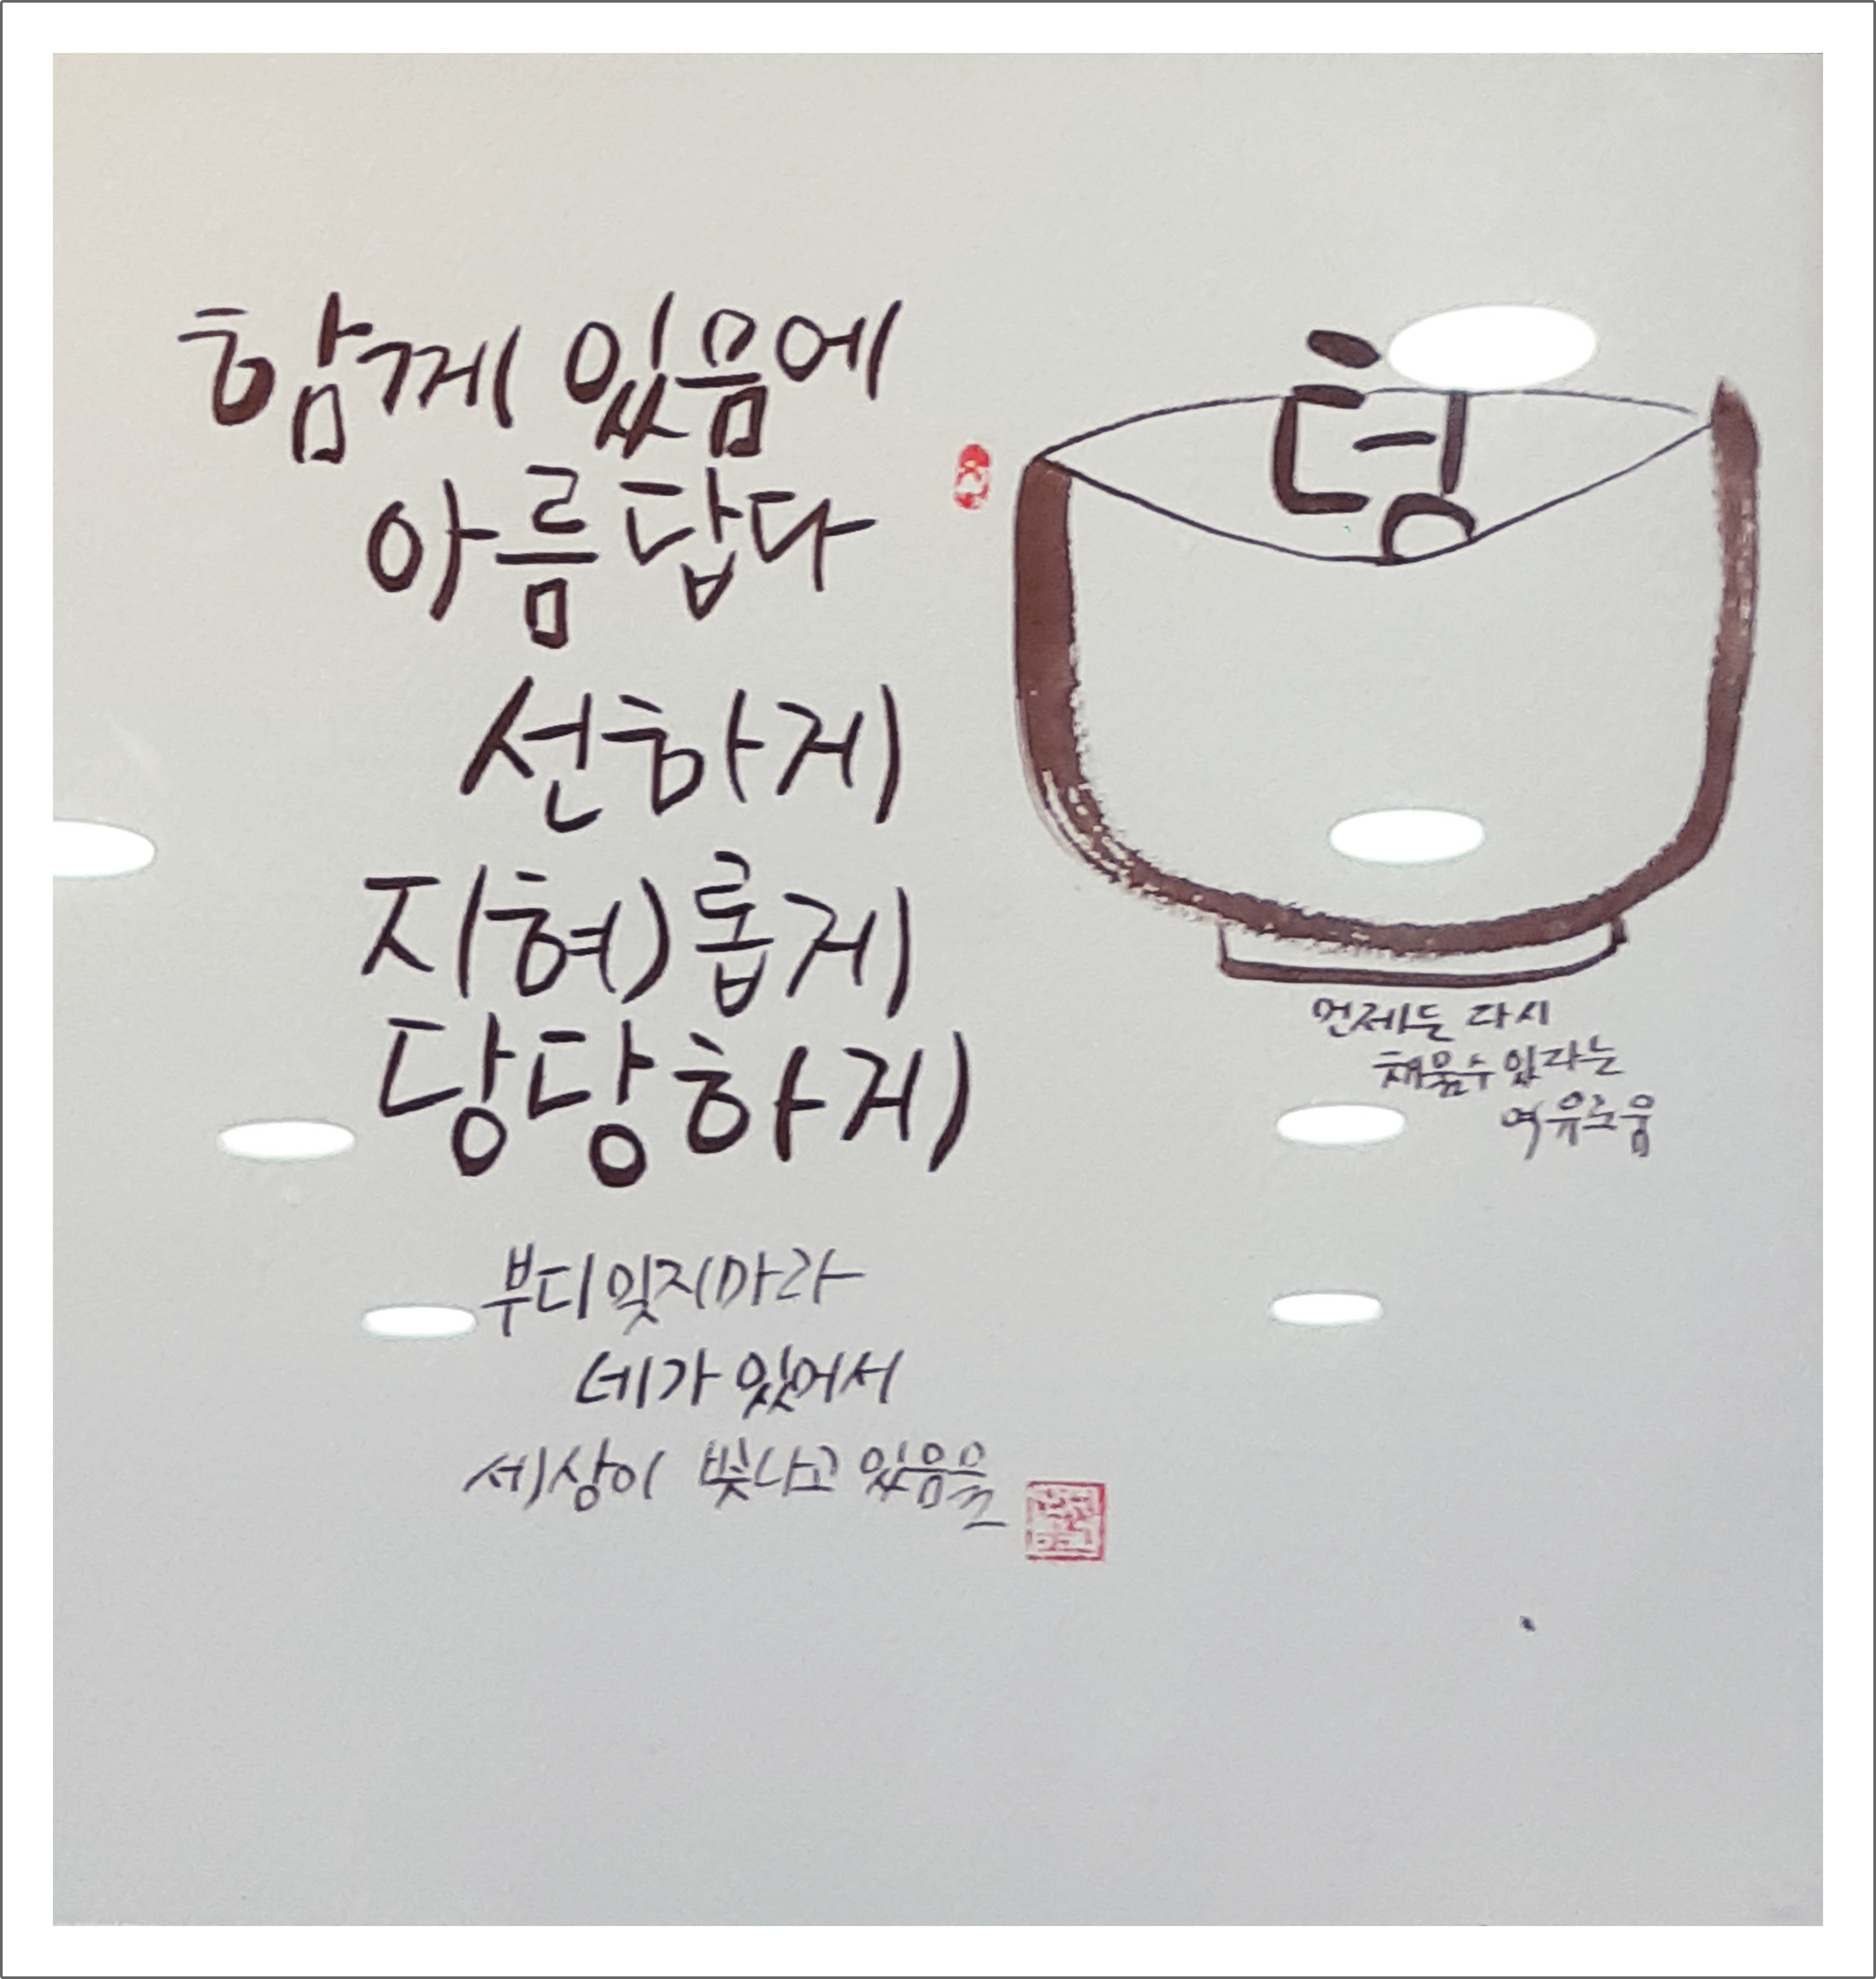 함께 있음에
아름답다
선하게
지혜롭게
당당하게
부디 잊지마라
네가 있어서
세상이 빛나고 있음을
텅
언제든 다시
채울수 있다는
여유로움